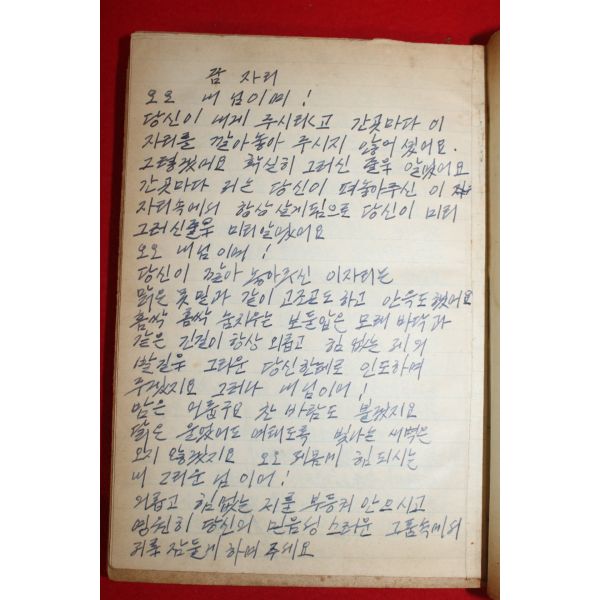 잠 자리
오오 내 님이여 !
당신이 내게 주시려고 간곳마다 이
자리를 깔아놓아 주시지 않어셨어요.
그렇겠어요 확실히 그러신 줄 알았어요
간곳마다 저는 당신이 펴놓아주신 이
자리속에서 항상 살게됨으로 당신이 미리
그러신줄 미리알았어요
오오 내님이여 !
당신이 깔아 놓아주신 이자리는
맑은 못 밑과 같이 고조곤도하고 안윽도했어요
홈싹 홈싹 눈지우는 보들압은 모래 바닥과
같은 긴길이 항상 외롭고 힘 없는 저의
발길을 그리운 당신한테로 인도하여
주겠지요 그러나 내님이여 !
밤은 어둡구요 찬 바람도 불겠지요
닭은 울었어도 여태도록 빛나는 새벽은
오지 오겠지요 오오 제몸에 힘되시는
내 그리운 님 이여 !
외롭고 힘없는 저를 부등켜 안으시고
영원히 당신의 믿음성 스러운 그품속에서
저를 잠들게 하여 주세요